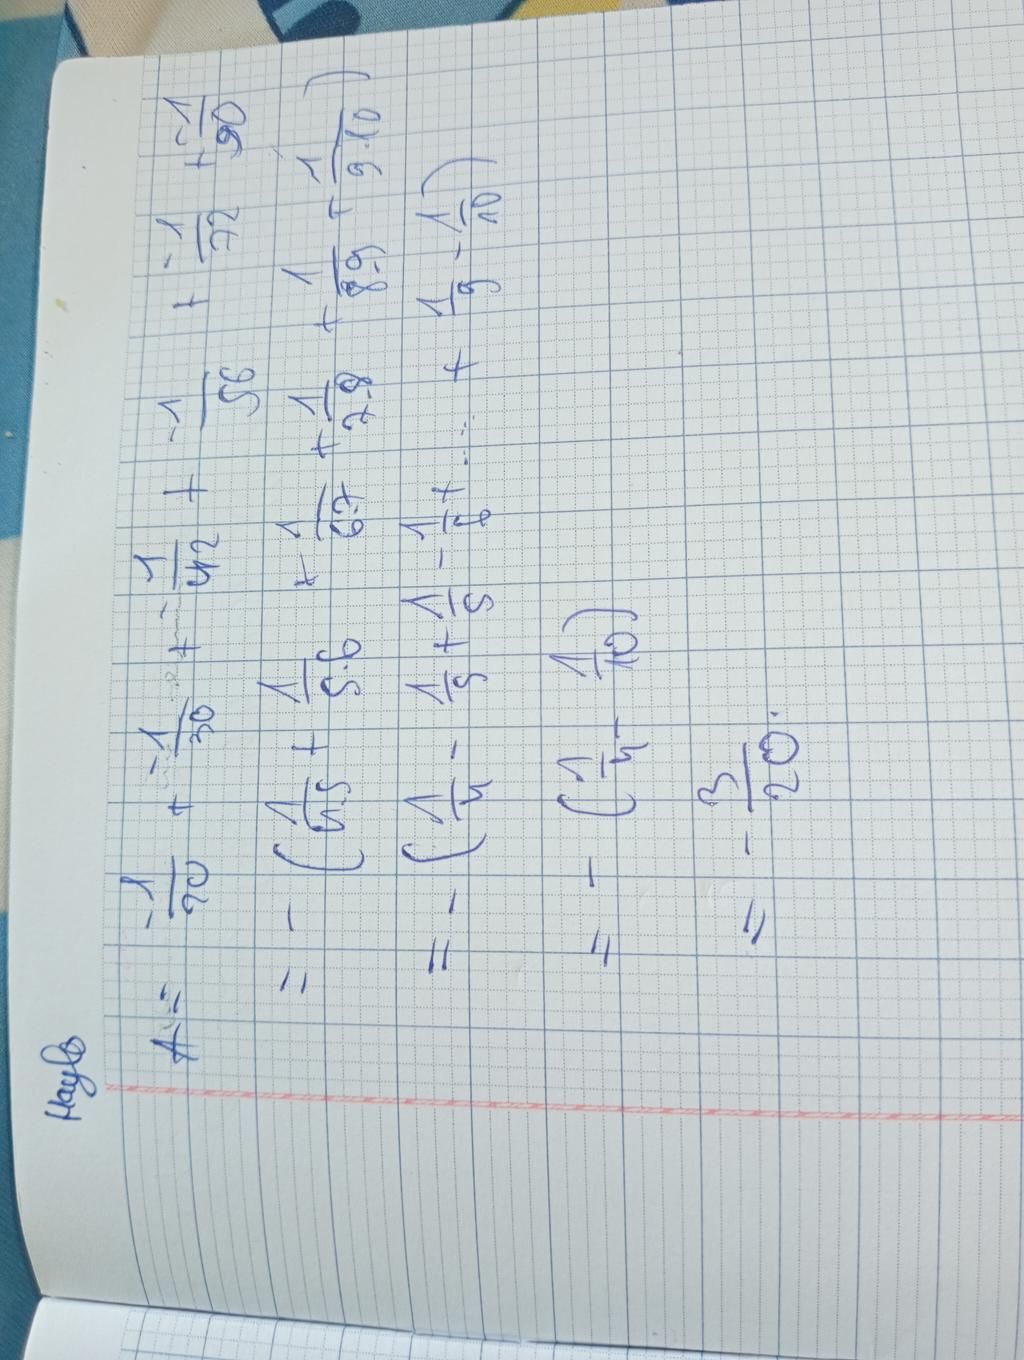 Hayle
A = -1/20 + -1/30 + -1/42 + -1/56 + -1/72 + -1/90
= - (1/4.5 + 1/5.6 + 1/6.7 + 1/7.8 + 1/8.9 + 1/9.10)
= - (1/4 - 1/5 + 1/5 - 1/6 + ... + 1/9 - 1/10)
= - (1/4 - 1/10)
= - 3/20.